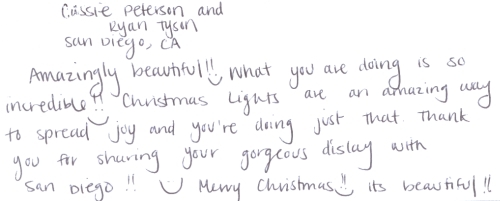 Cassie Peterson and
Ryan Tyson
San Diego, CA
Amazingly beautiful!! What you are doing is so
incredible!! Christmas Lights are an amazing way
to spread joy and you're doing just that. Thank
you for sharing your gorgeous dislay with
San Diego!! Merry Christmas!! its beautiful!!